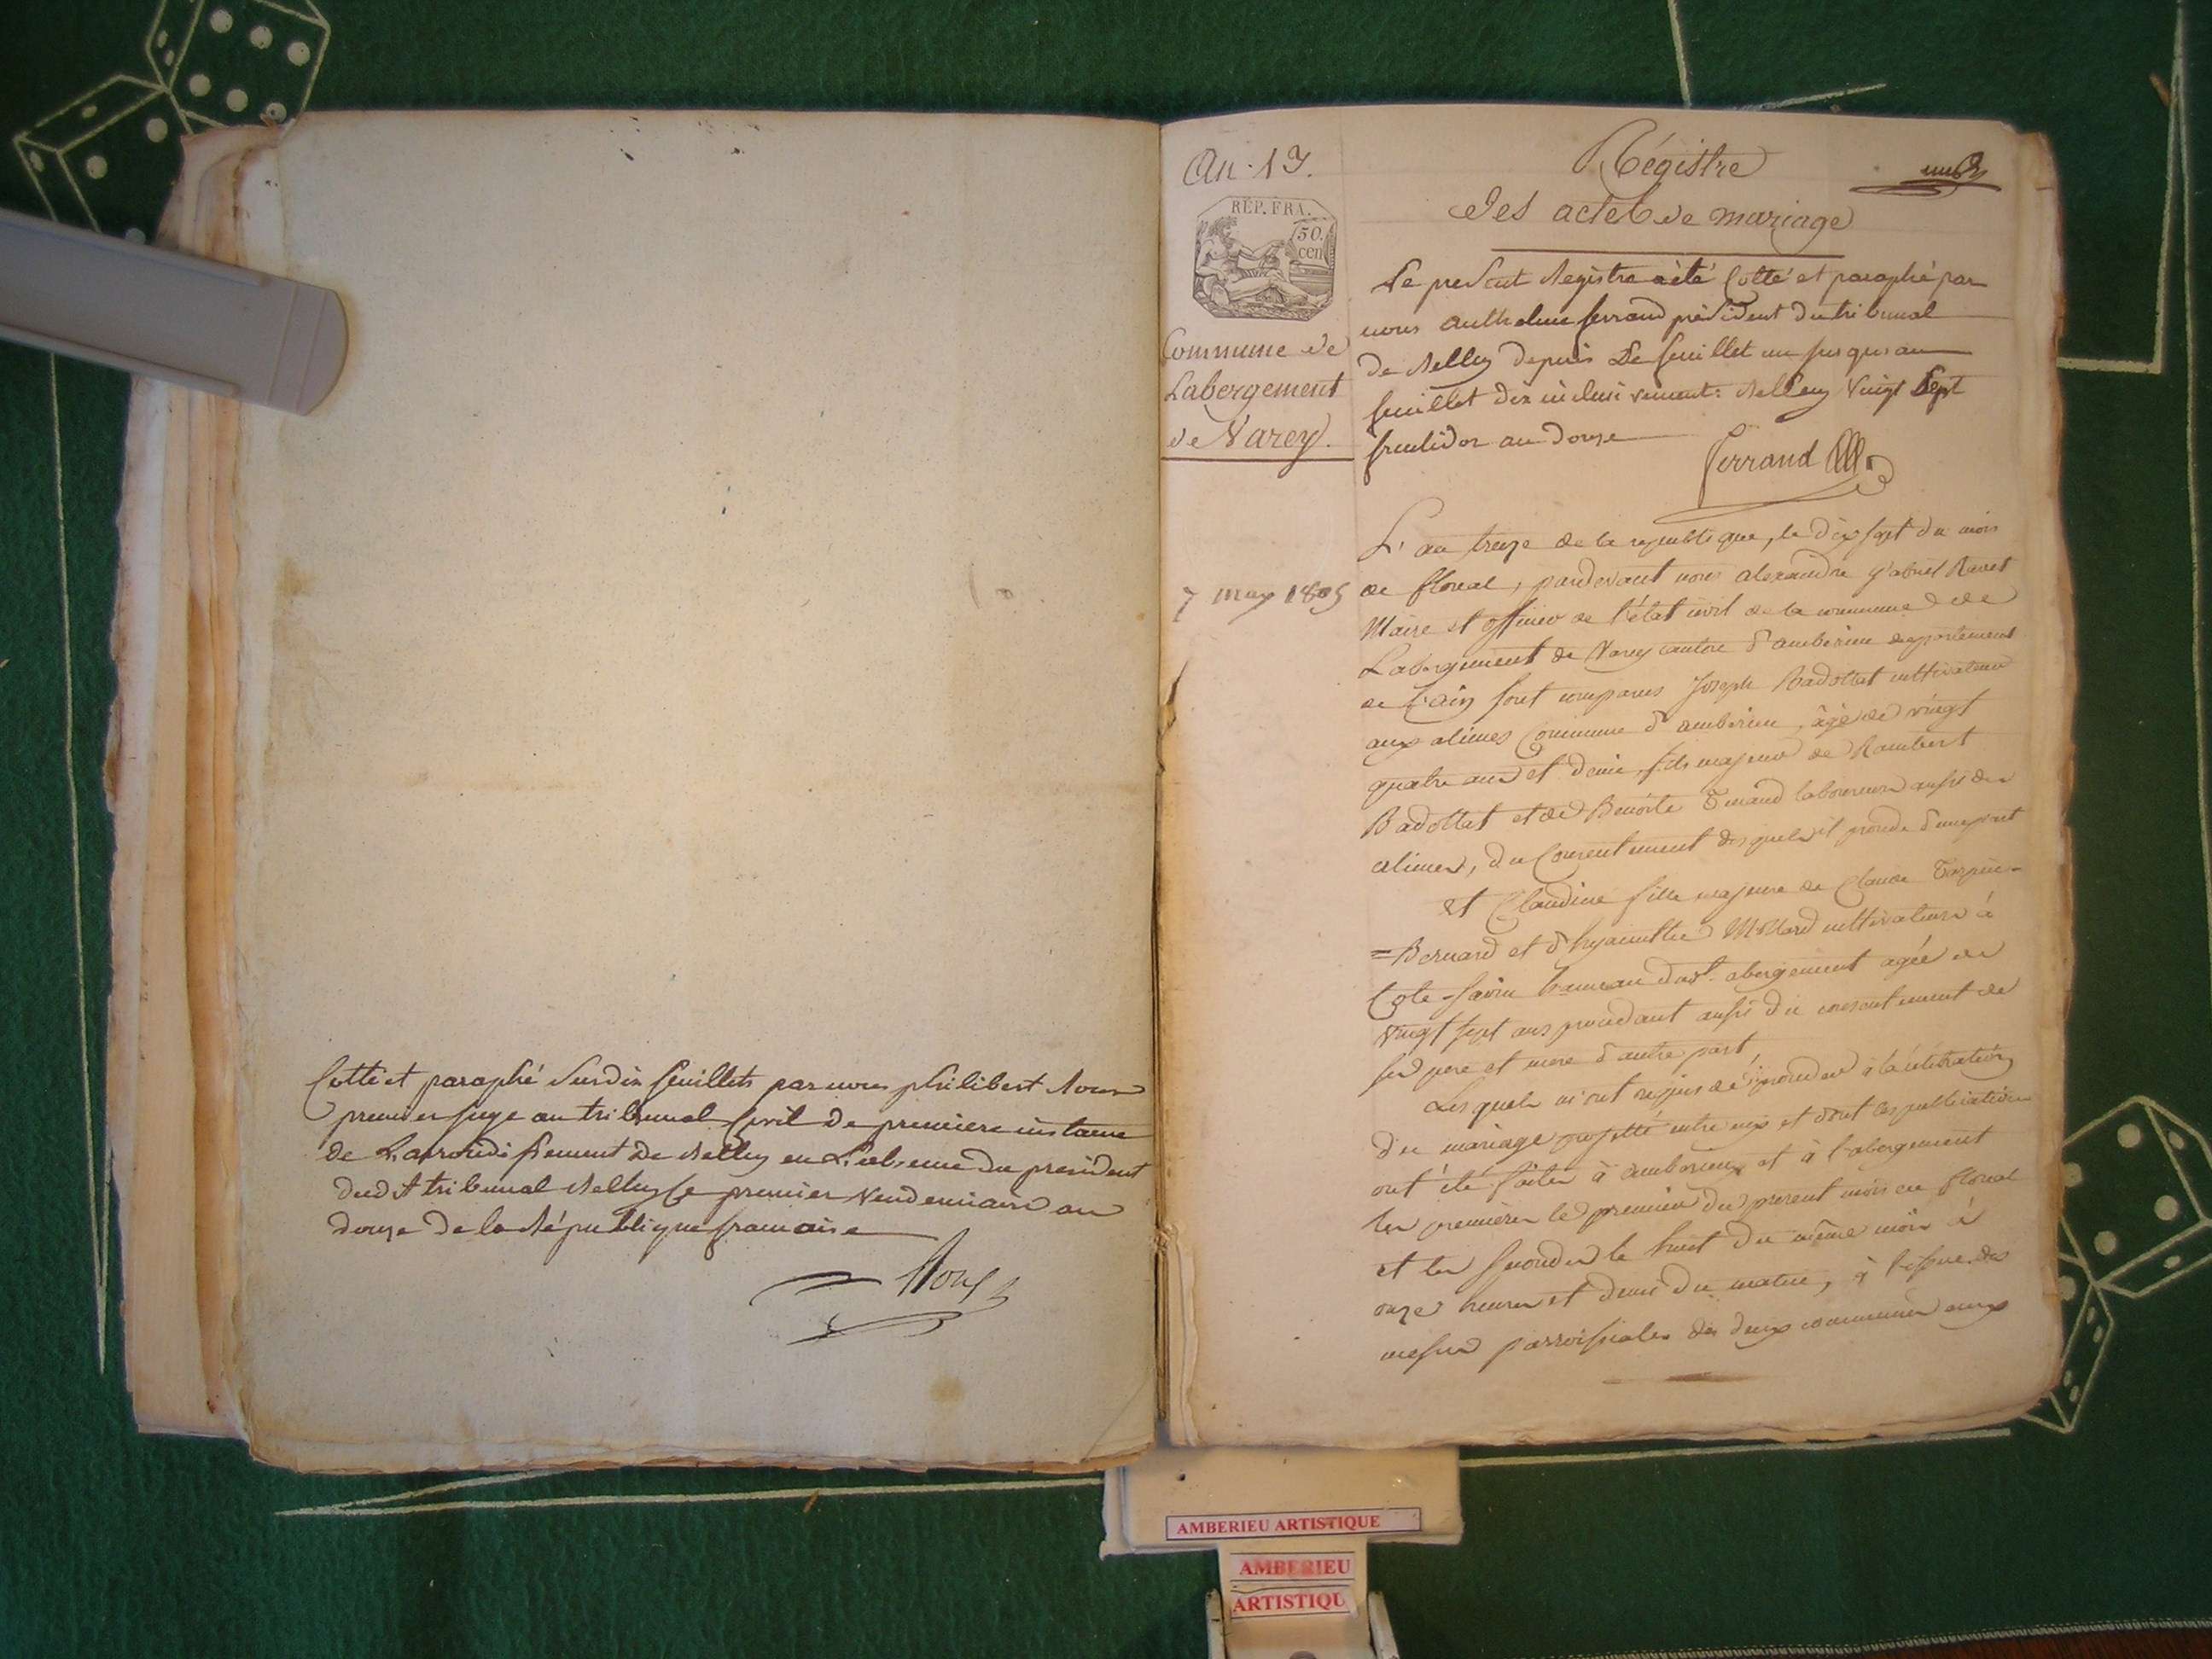 Cotté et paraphé sur dix feuillets par nous philibert
premier juge au tribunal Civil de premiere instance
de L'arrondissement de Belley en L'absence du president
dudit tribunal Belley le premier Vendemiaire an
douze de la République francaise
An 13.
RÉP. FRA.
50.
cen
Commune de
Labergement
de Varey.
7 may 1805
Régistre
des actes de mariage
Le present Registre a été Cotté et paraphé par
nous Anthelme ferrand président du tribunal
de Belley depuis Le feuillet un jusques au
feuillet dix inclusivement: Belley Vingt Sept
fructidor an douze
ferrand
L'an treize de la republique, le dix sept du mois
de floreal, pardevant nous alexandre gabriel
Maire et officier de l'état civil de la commune de
Labergement de Varey canton d'amberieu departement
de l'ain sont comparus Joseph Badollet cultivateur
aux alimes Commune d'amberieu, âgé de vingt
quatre ans et demi, fils majeur de Rambert
Badollet et de Benoite laboureurs aussi des
alimes, du Consentement desquels il procede d'une part
et Claudine fille majeure de Claude
=Bernard et d'hyacinthe Mollard cultivateurs à
Cote-savin hameau dud. abergement agée de
vingt sept ans procedant aussi du consentement de
ses pere et mere d'autre part
Lesquels m'ont requis de proceder à la célébration
du mariage projetté entre eux et dont les publications
ont été faites à amberieux et à l'abergement
les premieres le premier du present mois de floreal
et les secondes le huit du même mois à
onze heures et demi du matin, à l'issue des
messes parroissiales des deux communes aux
AMBERIEU ARTISTIQUE
AMBERIEU
ARTISTIQU